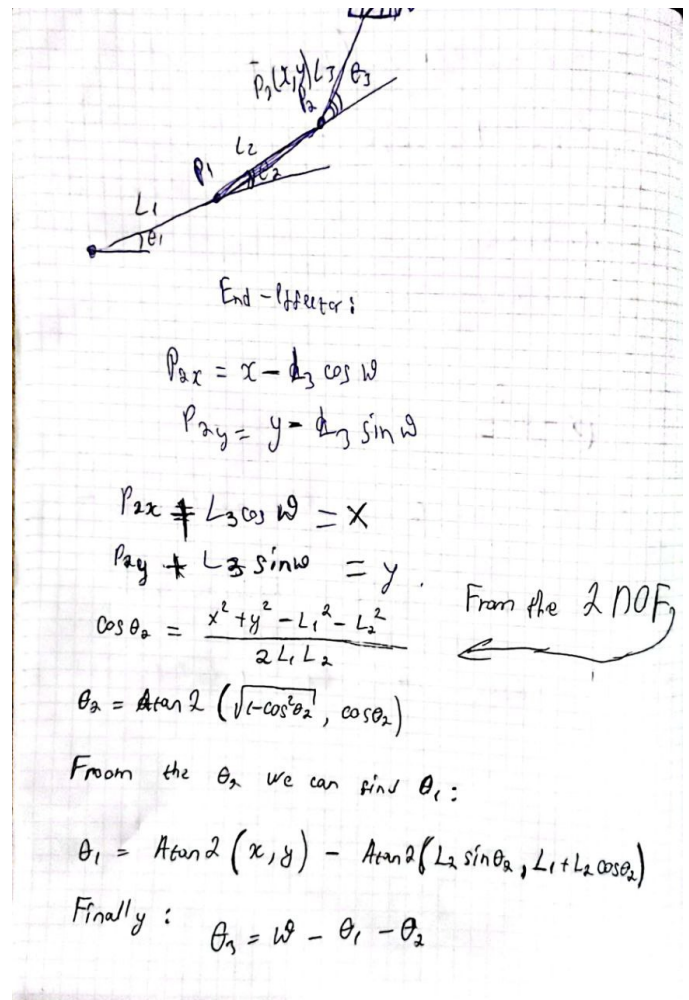 P₃(x,y) L3 θ3
P2
L2
P1 θ2
L1
θ1
End-Effector:
P2x = x - L3 cos ω
P2y = y - L3 sin ω
P2x + L3 cos ω = x
P2y + L3 sin ω = y .
From the 2 DOF,
cos θ2 = x² + y² - L1² - L2² / 2 L1 L2
θ2 = Atan2 (√1-cos²θ2 , cosθ2)
Froom the θ2 we can find θ1 :
θ1 = Atan2 (x, y) - Atan2 (L2 sinθ2 , L1 + L2 cosθ2)
Finally :
θ3 = ω - θ1 - θ2